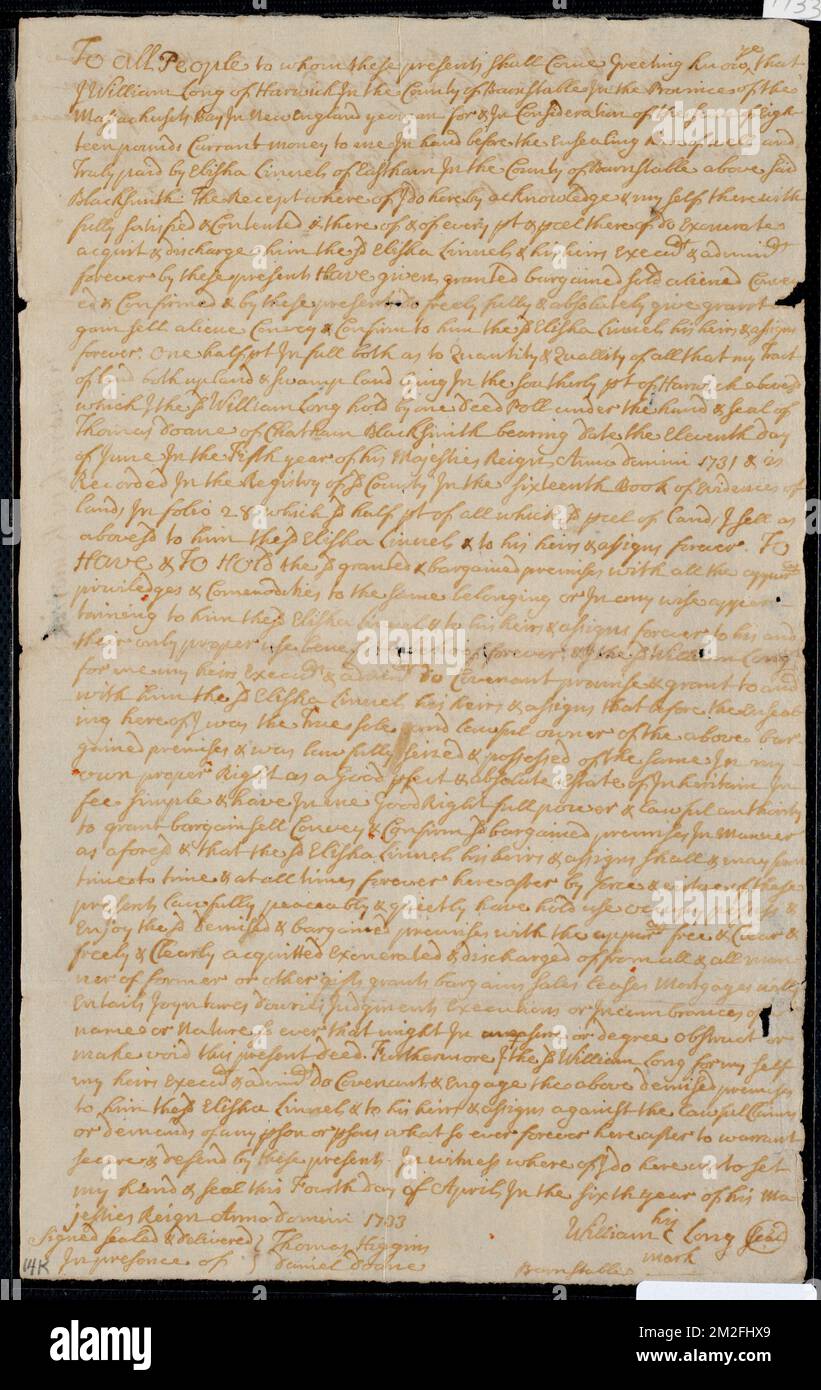 1733
To All People to whom these presents Shall Come Greeting Know ye that
I William Long of Harwich In the County of Barnstable In the Province of the
Massachusets Bay In New England yeoman for & In Consideration of the Sum of Eigh
teen pounds Currant money to me In hand before the Ensealing here of well and
Truly paid by Elisha Linnel of Eastham In the County of Barnstable above said
Blacksmith The Recept where of I do hereby acknowledge & my self there with
fully satisfied & Contented & there of & of every pt & pcel there of do Exonerate
acquit & discharge him the sd Elisha Linnel & his heirs Execut & admind
forever by these presents Have given granted bargained sold aliened Convey
ed & Confirmed & by these presents do freely fully & absolutely give grant
gain sell aliene Convey & Confirm to him the sd Elisha Linnel his heirs & assigns
forever One half pt In full both as to Quantity & Quallity of all that my Tract
of land both upland & swamp land lying In the southerly pt of Harwich abovesd
which I the sd William Long hold by one Deed Poll under the hand & seal of
Thomas Doane of Chatham BlackSmith bearing date the Eleventh day
of June In the Fifth year of his Majesties Reign Anno domini 1731 & is
Recorded In the Registry of sd County In the sixteenth Book of Evidences of
lands In folio 28 which sd half pt of all which sd pcel of land I sell as
abovesd to him the sd Elisha Linnel & to his heirs & assigns forever. To
Have & To Hold the sd granted & bargained premises with all the appurces
priviledges & Comenodities to the same belonging or In any wise apper
taining to him the sd Elisha Linnel & to his heirs & assigns forever to his and
their only proper use forever & I the sd William Long
for me my heirs Execut & admind do Covenant promise & grant to and
with him the sd Elisha Linnel his heirs & assigns that before the Enseal
ing here of I was the True sole and lawful owner of the above bar
gained premises & was lawfully seized & possessed of the same In my
own proper Right as a Good pfect & absolute Estate of Inheritain In
fee simple & have In me Good Right full power & lawful authority
to grant bargain sell Convey & Confirm sd bargained premises In Manner
as aforesd & that the sd Elisha Linnel his heirs & assigns shall & may from
time to time & at all times forever here after by force & virtue of these
presents lawfully peaceably & quietly have hold use occupy possess &
Enjoy the sd demised & bargained premises with the appurces free & Clear &
freely & Clearly acquitted Exonerated & discharged of from all & all man
ner of former or other gifts grants bargains sales leases Mortgages wills
Entails Joyntures dowries Judgments Executions or Incumbrances of
name or Nature so ever that might In or degree obstruct or
make void this present deed. Furthermore I the sd William Long for my self
my heirs Execut & admind do Covenant & Engage the above demised premises
to him the sd Elisha Linnel & to his heirs & assigns against the lawful Claims
or demands of any pson or psons what so ever forever here after to warrant
secure & defend by these presents In witness where of I do here unto set
my hand & seal this Fourth day of April In the sixth year of his Ma
jesties Reign Anno domini 1733
Signed sealed & delivered Thomas Higgins William his Long Seal
In presence of Daniel Doane mark
Barnstable
14K
alamy
Image ID: 2M2FHX9
www.alamy.com